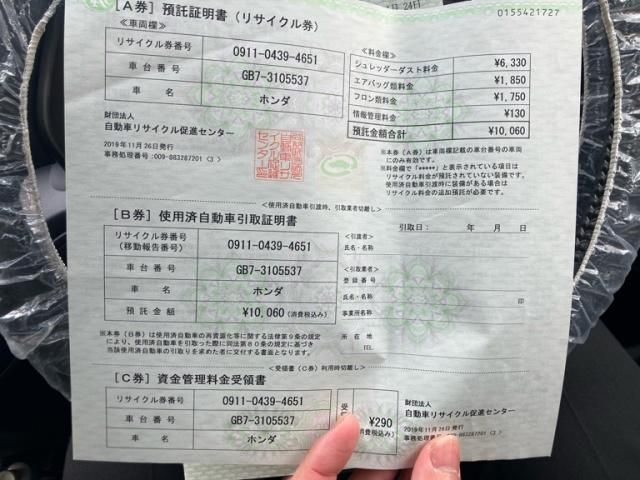 月 24日
[A券] 預託証明書（リサイクル券）
0155421727
≪車両欄≫
リサイクル券番号 0911-0439-4651
車台番号 GB7-3105537
車名 ホンダ
≪料金欄≫
シュレッダーダスト料金 ¥6,330
エアバッグ類料金 ¥1,850
フロン類料金 ¥1,750
情報管理料金 ¥130
預託金額合計 ¥10,060
財団法人
自動車リサイクル促進センター
2019年11月26日発行
事務処理番号:009-883287201〈3 〉
※本券（A券）は車両欄記載の車台番号の車両
にのみ有効です。
※料金欄で「*****」と表示されている項目は
リサイクル料金が預託されていない装備です。
使用済自動車引渡時に装備がある場合は
リサイクル料金の追加預託が必要です。
＜使用済自動車引渡時、引取業者切離し＞
[B券] 使用済自動車引取証明書
引取日： 年 月 日
リサイクル券番号
(移動報告番号) 0911-0439-4651
車台番号 GB7-3105537
車名 ホンダ
預託金額 ¥10,060(消費税込み)
＜引渡者＞
氏名・名称
＜引取業者＞
登録番号
氏名・名称 印
事業所名称
所在地
TEL
※本券（B券）は使用済自動車の再資源化等に関する法律第9条の規定
により、使用済自動車を引取った際に同法第80条の規定に基づき
当該使用済自動車の引取りを求めた者に交付する書面となります。
＜受領書（C券）利用時切離し＞
[C券] 資金管理料金受領書
リサイクル券番号 0911-0439-4651
車台番号 GB7-3105537
車名 ホンダ
受
¥290
消費税込み)
財団法人
自動車リサイクル促進センター
2019年11月26日発行
事務処理番号:009-883287201〈3 〉